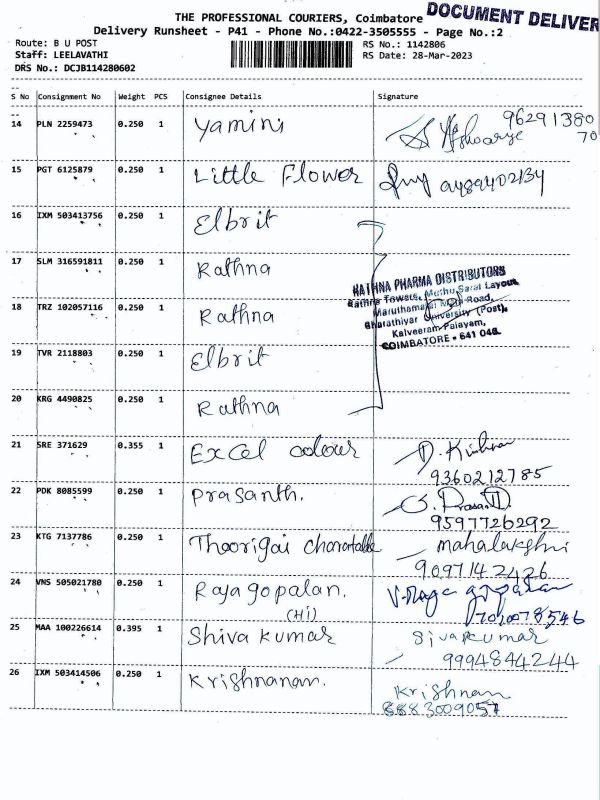 DOCUMENT DELIVER
THE PROFESSIONAL COURIERS, Coimbatore
Delivery Runsheet - P41 - Phone No.:0422-3505555 - Page No.:2
Route: B U POST
RS No.: 1142806
Staff: LEELAVATHI
RS Date: 28-Mar-2023
DRS No.: DCJB114280602
S No Consignment No Weight PCS Consignee Details Signature
14 PLN 2259473 0.250 1 Yamini 96291380
70
15 PGT 6125879 0.250 1 Little Flower 9489402134
16 IXM 503413756 0.250 1 Elbrit
17 SLM 316591811 0.250 1 Rathna
RATHNA PHARMA DISTRIBUTORS
Rathna Towers, Muthu Saral Layout,
18 TRZ 102057116 0.250 1 Rathna
Maruthamalai Main Road,
Bharathiyar University (Post),
Kalveeram Palayam,
COIMBATORE • 641 046.
19 TVR 2118803 0.250 1 Elbrit
20 KRG 4490825 0.250 1 Rathna
21 SRE 371629 0.355 1 Excel colour
9360212785
22 PDK 8085599 0.250 1 Prasanth.
9597726292
23 KTG 7137786 0.250 1 Thoorigai mahalakshmi
9097142426
24 VNS 505021780 0.250 1 Rajagopalan. V.Raja gopalan
(Hi)
25 MAA 100226614 0.395 1 Shiva kumar Sivakumar
9994844244
26 IXM 503414506 0.250 1 Krishnanan. Krishnan
8883009057